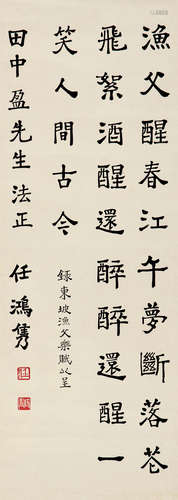 漁父醒春江午夢斷落花
飛絮酒醒還醉醉還醒一
笑人間古今
錄東坡漁父樂賦以呈
田中盈先生法正
任鴻雋